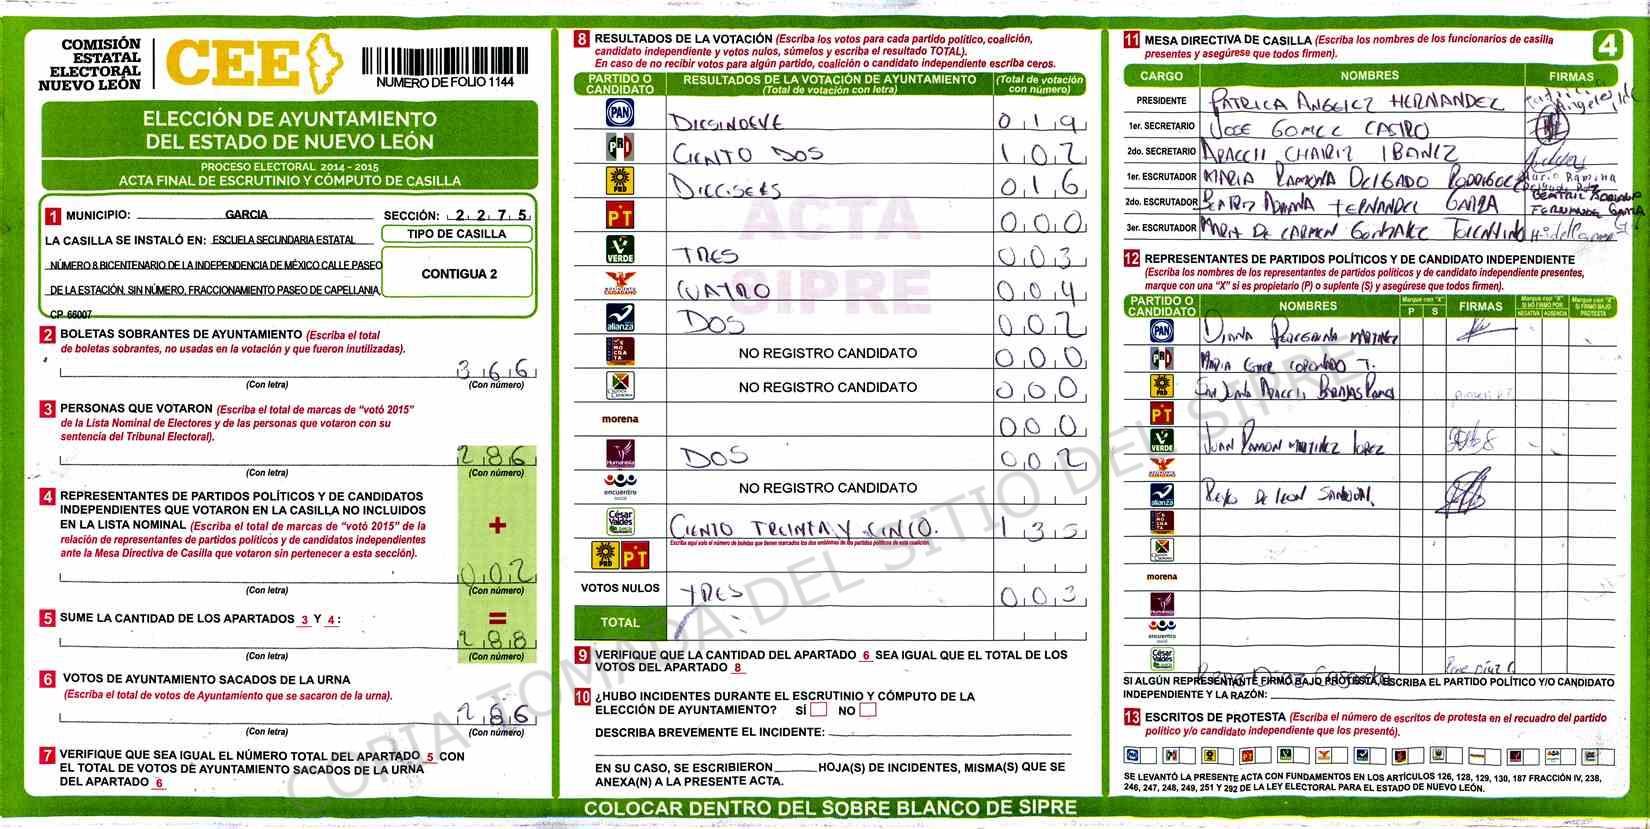 COMISIÓN
ESTATAL
ELECTORAL
NUEVO LEÓN
CEE
NUMERO DE FOLIO 1144
ELECCIÓN DE AYUNTAMIENTO
DEL ESTADO DE NUEVO LEÓN
PROCESO ELECTORAL 2014 - 2015
ACTA FINAL DE ESCRUTINIO Y CÓMPUTO DE CASILLA
1 MUNICIPIO: GARCIA SECCIÓN: 2 2 7 5
LA CASILLA SE INSTALÓ EN: ESCUELA SECUNDARIA ESTATAL
NÚMERO 8 BICENTENARIO DE LA INDEPENDENCIA DE MÉXICO CALLE PASEO
DE LA ESTACIÓN, SIN NÚMERO, FRACCIONAMIENTO PASEO DE CAPELLANIA,
CP 66007
TIPO DE CASILLA
CONTIGUA 2
2 BOLETAS SOBRANTES DE AYUNTAMIENTO (Escriba el total
de boletas sobrantes, no usadas en la votación y que fueron inutilizadas).
3 6 6
(Con letra) (Con número)
3 PERSONAS QUE VOTARON (Escriba el total de marcas de "votó 2015"
de la Lista Nominal de Electores y de las personas que votaron con su
sentencia del Tribunal Electoral).
2 8 6
(Con letra) (Con número)
4 REPRESENTANTES DE PARTIDOS POLÍTICOS Y DE CANDIDATOS
INDEPENDIENTES QUE VOTARON EN LA CASILLA NO INCLUIDOS
EN LA LISTA NOMINAL (Escriba el total de marcas de "votó 2015" de la
relación de representantes de partidos políticos y de candidatos independientes
ante la Mesa Directiva de Casilla que votaron sin pertenecer a esta sección).
+
0 0 2
(Con letra) (Con número)
5 SUME LA CANTIDAD DE LOS APARTADOS 3 Y 4:
=
2 8 8
(Con letra) (Con número)
6 VOTOS DE AYUNTAMIENTO SACADOS DE LA URNA
(Escriba el total de votos de Ayuntamiento que se sacaron de la urna).
2 8 6
(Con letra) (Con número)
7 VERIFIQUE QUE SEA IGUAL EL NÚMERO TOTAL DEL APARTADO 5 CON
EL TOTAL DE VOTOS DE AYUNTAMIENTO SACADOS DE LA URNA
DEL APARTADO 6
8 RESULTADOS DE LA VOTACIÓN (Escriba los votos para cada partido político, coalición,
candidato independiente y votos nulos, súmelos y escriba el resultado TOTAL).
En caso de no recibir votos para algún partido, coalición o candidato independiente escriba ceros.
PARTIDO O CANDIDATO
RESULTADOS DE LA VOTACIÓN DE AYUNTAMIENTO
(Total de votación con letra)
(Total de votación con número)
PAN DIESINUEVE 0 1 9
PRI CIENTO DOS 1 0 2
PRD DIECISEIS 0 1 6
PT 0 0 0
VERDE TRES 0 0 3
CIUDADANO CUATRO 0 0 4
alianza DOS 0 0 2
NO REGISTRO CANDIDATO 0 0 0
NO REGISTRO CANDIDATO 0 0 0
morena 0 0 0
Humanista DOS 0 0 2
encuentro social NO REGISTRO CANDIDATO
César Valdés CIENTO TREINTA Y CINCO. 1 3 5
Escriba aquí solo el número de boletas que tienen marcados los dos emblemas de los partidos políticos de esta coalición.
PRD PT
VOTOS NULOS TRES 0 0 3
TOTAL
9 VERIFIQUE QUE LA CANTIDAD DEL APARTADO 6 SEA IGUAL QUE EL TOTAL DE LOS
VOTOS DEL APARTADO 8
10 ¿HUBO INCIDENTES DURANTE EL ESCRUTINIO Y CÓMPUTO DE LA
ELECCIÓN DE AYUNTAMIENTO? SÍ NO
DESCRIBA BREVEMENTE EL INCIDENTE:
EN SU CASO, SE ESCRIBIERON HOJA(S) DE INCIDENTES, MISMA(S) QUE SE
ANEXA(N) A LA PRESENTE ACTA.
COLOCAR DENTRO DEL SOBRE BLANCO DE SIPRE
ACTA
SIPRE
COPIA TOMADA DEL SITIO DEL SIPRE
11 MESA DIRECTIVA DE CASILLA (Escriba los nombres de los funcionarios de casilla
presentes y asegúrese que todos firmen).
4
CARGO NOMBRES FIRMAS
PRESIDENTE HERNANDEZ
1er. SECRETARIO JOSE GOMEZ CASTRO
2do. SECRETARIO
1er. ESCRUTADOR MARIA RAMONA DELGADO RODRIGUEZ
2do. ESCRUTADOR BEATRIZ ADRIANA FERNANDEZ GARZA
3er. ESCRUTADOR MARIA DE CARMEN GONZALEZ TOLENTINO
12 REPRESENTANTES DE PARTIDOS POLÍTICOS Y DE CANDIDATO INDEPENDIENTE
(Escriba los nombres de los representantes de partidos políticos y de candidato independiente presentes,
marque con una "X" si es propietario (P) o suplente (S) y asegúrese que todos firmen).
PARTIDO O CANDIDATO
NOMBRES
Marque con "X"
P S
FIRMAS
Marque con "X" SI NO FIRMÓ POR
NEGATIVA AUSENCIA
Marque con "X" SI FIRMÓ BAJO PROTESTA
PAN DIANA MARTINEZ
PRI MARIA CORONADO T.
PRD SAN JUANA
PT
VERDE JUAN RAMON MARTINEZ LOPEZ
alianza DE LEON SANDOVAL
morena
encuentro social
César Valdés
SI ALGÚN REPRESENTANTE FIRMÓ BAJO PROTESTA, ESCRIBA EL PARTIDO POLÍTICO Y/O CANDIDATO
INDEPENDIENTE Y LA RAZÓN:
13 ESCRITOS DE PROTESTA (Escriba el número de escritos de protesta en el recuadro del partido
político y/o candidato independiente que los presentó).
SE LEVANTÓ LA PRESENTE ACTA CON FUNDAMENTOS EN LOS ARTÍCULOS 126, 128, 129, 130, 187 FRACCIÓN IV, 238,
246, 247, 248, 249, 251 Y 292 DE LA LEY ELECTORAL PARA EL ESTADO DE NUEVO LEÓN.